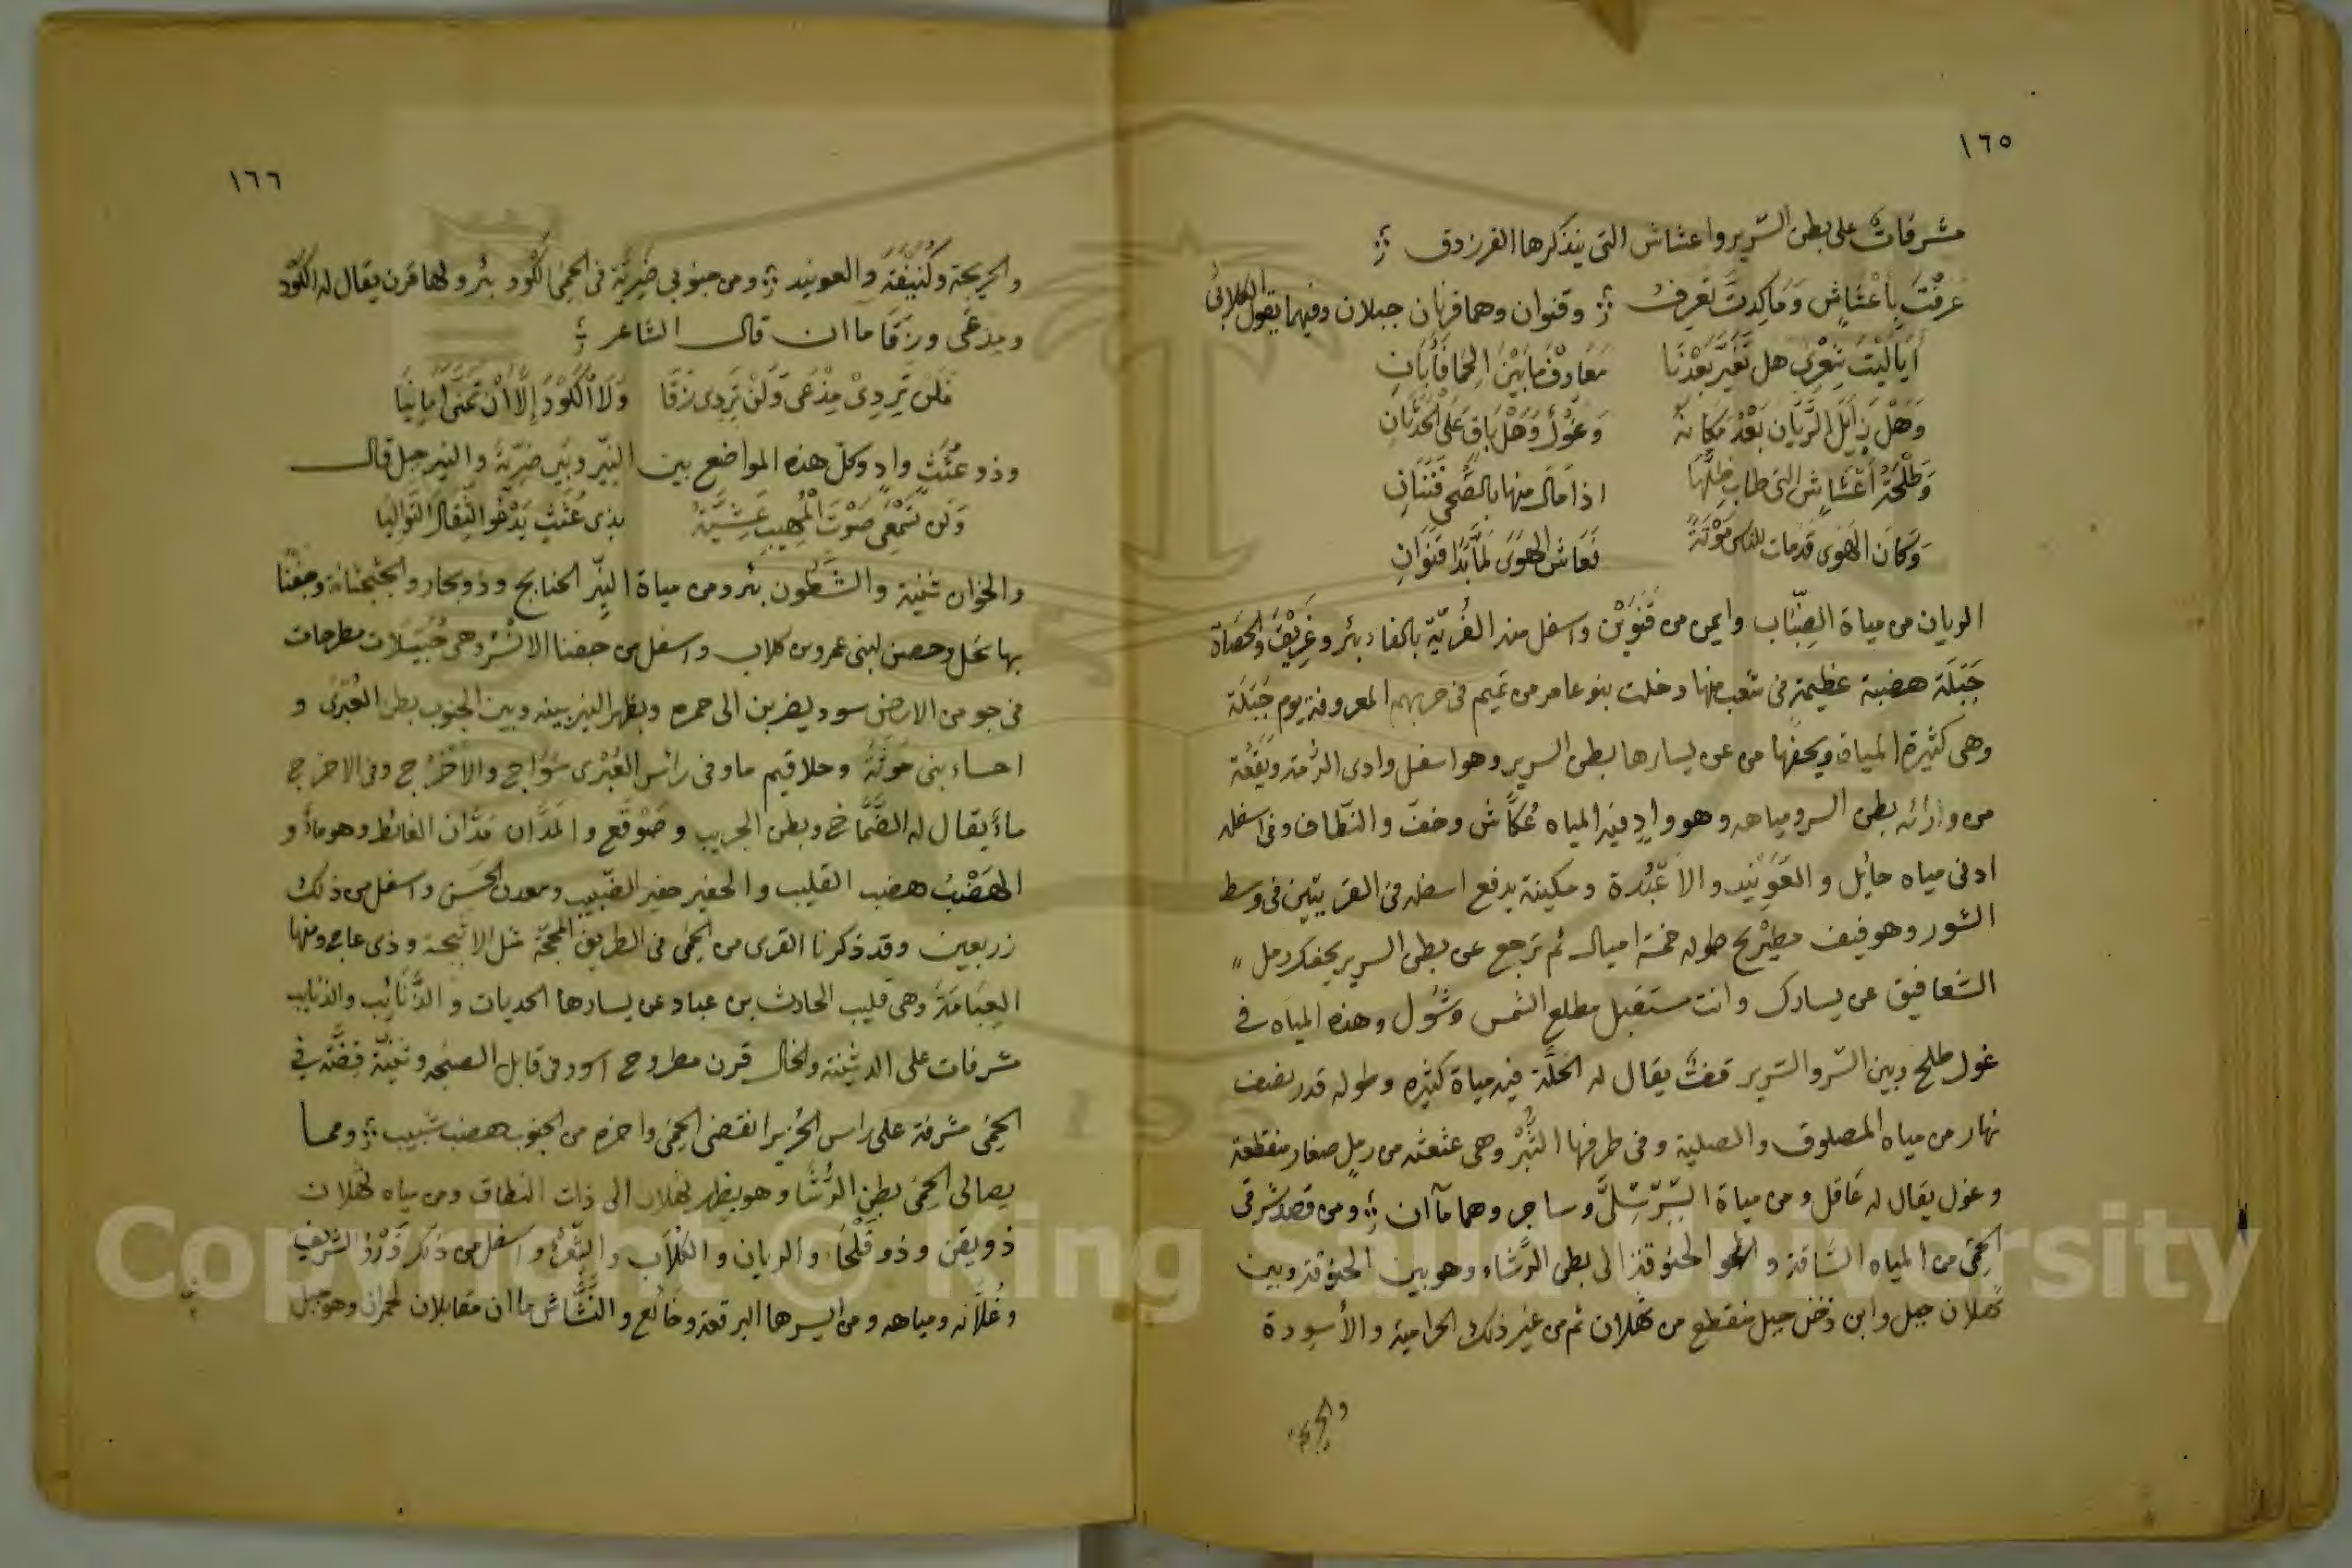 ١٦٥
مشرفات على بطن السرير واعشاش التى يذكرها الفرزدق
عَرفتَ بأَعْشَاشٍ وَمَا كِدتَ تَعرِفُ وقنوان وهما قرنان جبلان وفيهما يقول الكلابىُّ
أيَا لَيْتَ شِعْرِى هل تَغَيَّرَ بَعْدَنَا مَعَارِفُ مَا بَيْنَ الحِمَا فَأَبَانِ
وَهَلْ زَايَلَ الرَّيَّان بَعْدُ مَكَانَهُ وَغَوْلٌ وَهَلْ بَاقٍ عَلَى الحَدَثَانِ
وَطَلْحَةُ أَعْشَاشٍ التى طابَ ظِلُّهَا اذا مَالَ منها بالضُّحى فَنَنَانِ
وَكَانَ الهَوَى قد مات للناس مَوْتَةً فَعَاشَ الهَوَى لمَّا بَدَا قَنَوَانِ
الريان من مياة الضِّبَاب وايمن من قَنَوَيْن واسفل منه الغُربّة بالحفاء بئر وغَرِيْفُ والحَصَاة
جَبَلَة هضبة عظيمة فى شعب منها دخلت بنو عامر من تميم فى حربهم المعروفة يوم جَبَلَة
وهى كثيرة المياة ويحفها من عن يسارها بطن السرير وهو اسفل وادى الرُّمة ويَقَعُهُ
من ورائه بطن السر ومياهه وهو وادٍ فيه المياه عُكَّاش وخفّ والنّطاف وفى اسفله
ادنى مياه حائل والعَوِيْنِد والاَعْبُدة ومكينة يدفع اسفله فى القريتين فى وسط
الثور وهو فيف مطيْرِيح طوله خمسة اميال ثم ترجع عن بطن السرير يحفك رمل
الشقافيق عن يسارك وانت مستقبل مطلع الشمس وشُول وهذه المياه فى
غول طلح وبين السّر والسّرير قفتٌ يقال له الخَلَّة فيه مياة كثيره وطوله قدر نصف
نهار من مياه المصلوق والصلية وفى طرفها النَّبْرُ وهى عثعثه من رملٍ صغار منقطعة
وغول يقال له عَاقل ومن مياة السِّرّ سِّلىَّ وساجر وهما مآان ومن قصد شرقى
الحِمَى من المياه الشّاقة والحو الحنوقة الى بطن الرَّشاء وهو بين الحنوقة وبين
ثهلان جبل وابن دَخَن جبل منقطع من ثَهْلان ثم من غير ذلك الحرامية والأسودة
والجريحة
١٦٦
والجريحة وكُنَيْفَةَ والعونيد ومن جنوبى ضَرِيَّة فى الحِمَى الكَوْد بئر ولها قرن يقال له الكَوْد
ومِدْعَى ورَقَا ماان قال الشاعر
فلن تَرِدِىْ مِدْعَى وَلَنْ تَرِدِى رَقَا وَلَا الكَوْدَ إِلَّا أَنْ تَمَنَّى أَمَانِيَا
وذو عُثَث وادٍ وكل هذه المواضع بين النِّير وبَين ضَرِيّة والنير جبل قال
وَلَن تَسْمَعِى صَوْتَ المُهِيبِ عَشِيَّةً بذى عُثَثٍ يَدْعُو الثِقَالَ التَوالِيَا
والخوان ثنية والشَطُون بئر ومن مياة النِّير الحنابج وذو بحار والجثجثانة وجفنا
بها نخل وحصن لبنى عمرو بن كلاب واسفل من جفنا الانسُر وهى جُبَيْلَات مطرحات
فى جو من الارض سود يضربن الى حمره وبظهر النير بينه وبين الجنوب بطن العُبْرى و
احساء بنى حَوثَةَ وحلاقيم ماو فى رأس العُبْرى سُوَاج والاَخْرُج وفى الاخرج
ماءٌ يقال له الضَّمَّاخ وبطن الجريب وضَوْقع والمَدَّان مَدَّان الغائط وهو ماءٌ و
الهَضْبُ هضب القليب والحفير حفير الضبيب ومعدن الحَسَن واسفل من ذلك
زربعين وقد ذكرنا القرى من الحِمَى فى الطريق المحجّة مثل الاثبجة وذى عاج ومنها
العِبَامَة وهى قليب الحادث بن عباد عن يسارها الحديات والذَّنَائِب والذنايب
مشرفات على الدثينة والخال قرن مطروح اسود فى قابل الصخه وثنيّة قِضَّة فى
الحِمَى مشرفة على راس الحُزيرا نقضى الحِمَى واحزه من الجنوب هضب شبيب ومما
يصالى الحِمَى بطن الرُشَّا وهو بظهر ثهلان الى ذات النطاق ومن مياه ثهلان
ذو يقن وذو قَلْحَاء والريان والكُلَاب والشَّعْرُ واسفل من ذلك وَرْدُ الشريف
وغُلَّانه ومياهه ومن ايسرها البرقعة وخالع والنَّشَّاش ماان مقابلان لحمران وهو جبل